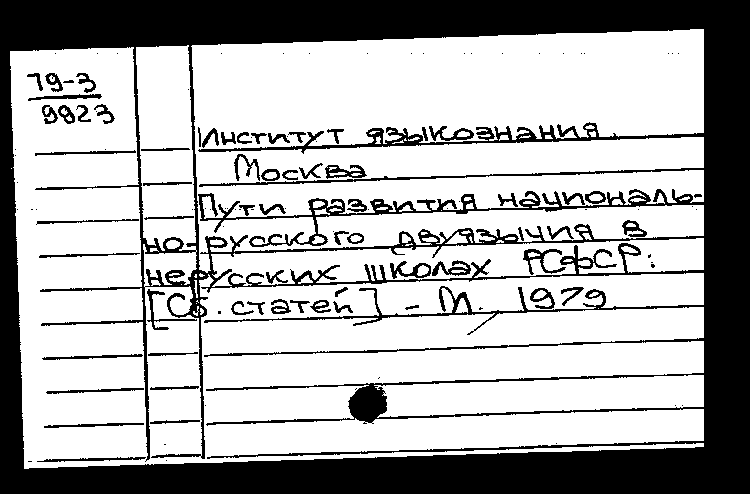 79-3
9923
Институт языкознания.
Москва.
Пути развития националь-
но-русского двуязычия в
нерусских школах РСФСР:
[Сб. статей] - М., 1979